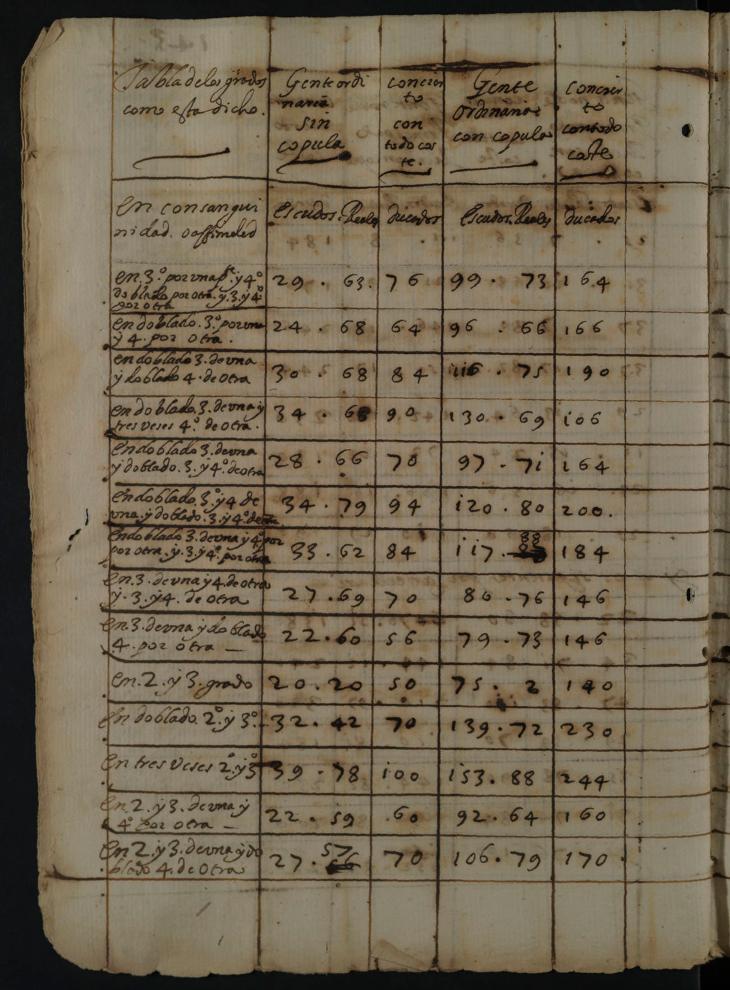 Tabla de los grados
como esta dicho.
Gente ordi
naria
sin
copula
concier
to
con
todo cos
te.
Gente
Ordinaria
con copula
concier
to
con todo
coste
En consangui
nidad. o affinidad
Escudos. Reales
ducados
Escudos. Reales
ducados
en 3.º por vna pte. y 4.º
doblado por otra. y 3. y 4.º
por otra
29 · 63.
76
99 · 73
164
en doblado. 3.º por vna
y 4. por otra.
24 · 68
64
96 · 66
166
en doblado 3. de vna
y doblado 4. de otra
30 · 68
84
116 · 75
190
en doblado 3. de vna y
tres veses 4.º de otra.
34 · 68
90
130 · 69
106
En doblado 3. de vna
y doblado. 3. y 4.º de otra
28 · 66
70
97 · 71
164
en doblado 3.º y 4 de
vna. y doblado. 3. y 4.º de otra
34 · 79
94
120 · 80
200.
En doblado 3. de vna y 4.º por
por otra. y. 3. y 4.º por otra
33 · 62
84
117. 88
184
en 3. de vna y 4. de otra
y. 3. y 4. de otra
27 · 69
70
80 · 76
146
en 3. de vna y doblado
4. por otra —
22 · 60
56
79 · 73
146
en. 2. y 3. grado
20 · 20
50
75 · 2
140
En doblado. 2.º y 3.º
32 · 42
70
139 · 72
230
en tres veses 2.º y 3.º
39 · 78
100
153. 88
244
en. 2. y 3. de vna y
4.º por otra —
22 · 59
60
92 · 64
160
en 2. y 3. de vna y do
blado 4. de otra
27 · 57
70
106 · 79
170 ·